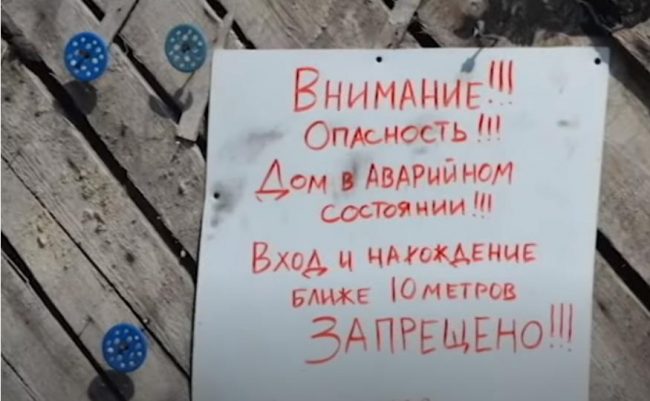 Внимание!!!
Опасность!!!
Дом в аварийном
состоянии!!!
Вход и нахождение
ближе 10 метров
ЗАПРЕЩЕНО!!!